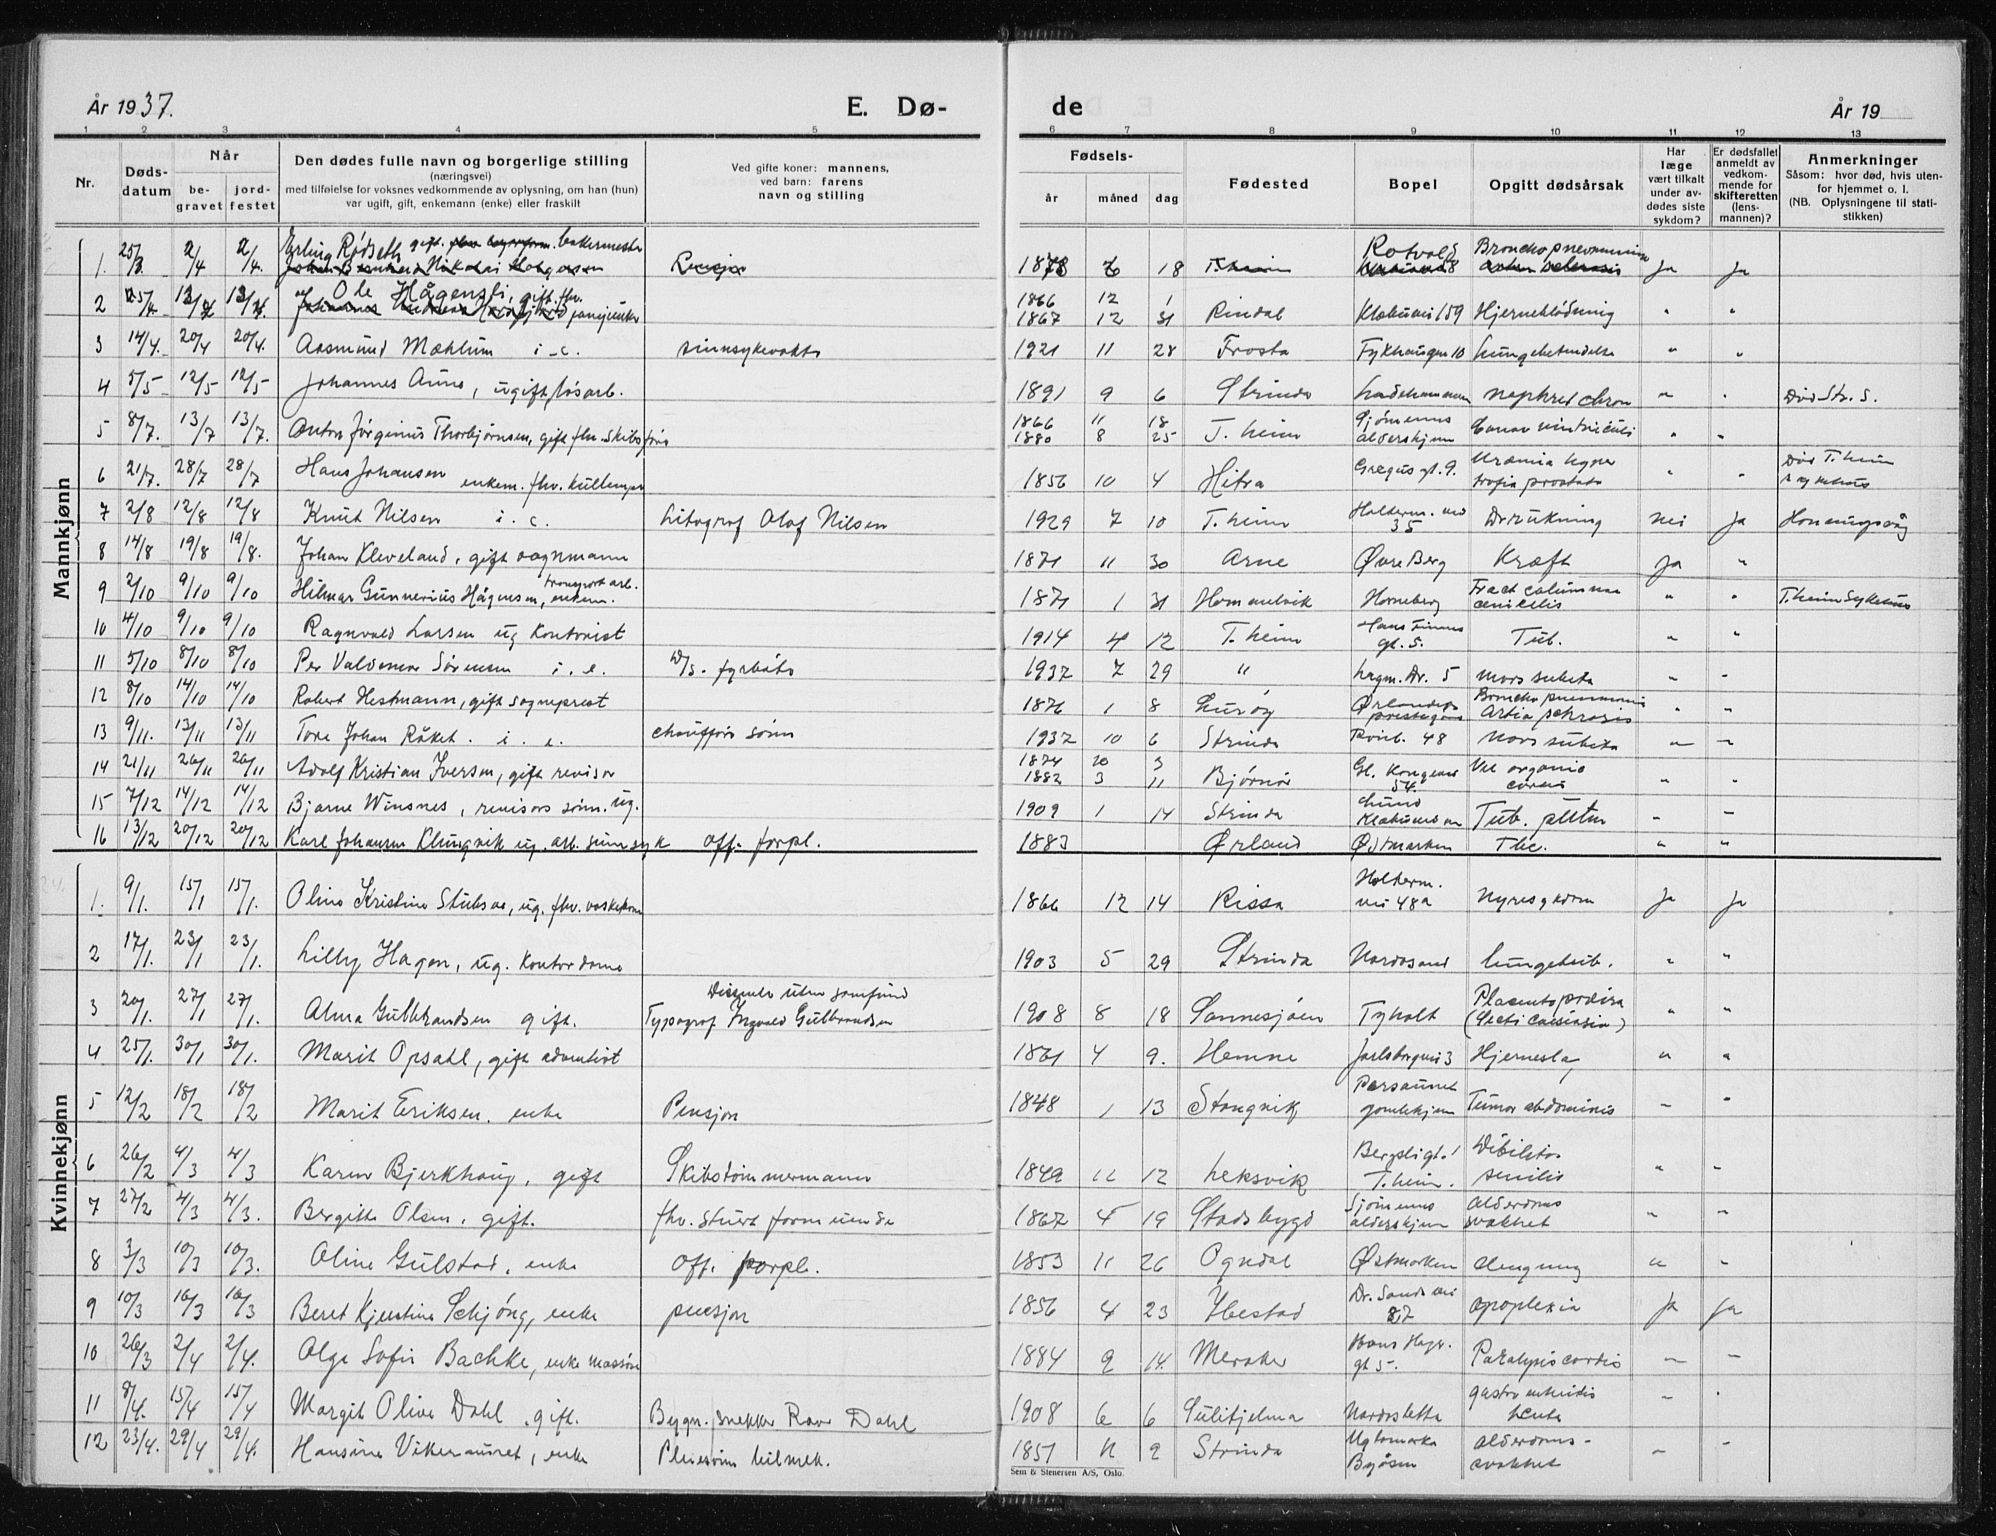 År 1937.
E. Dø-
de
År 19
1 2 3 4 5 6 7 8 9 10 11 12 13
Nr.
Døds-
datum
Når
be-
gravet
jord-
festet
Den dødes fulle navn og borgerlige stilling
(næringsvei)
med tilføielse for voksnes vedkommende av oplysning, om han (hun)
var ugift, gift, enkemann (enke) eller fraskilt
Ved gifte koner: mannens,
ved barn: farens
navn og stilling
Fødsels-
år
måned
dag
Fødested
Bopel
Opgitt dødsårsak
Har
læge
vært tilkalt
under av-
dødes siste
sykdom?
Er dødsfallet
anmeldt av
vedkom-
mende for
skifteretten
(lens-
mannen)?
Anmerkninger
Såsom: hvor død, hvis uten-
for hjemmet o. l.
(NB. Oplysningene til stati-
stikken)
Mannkjønn
1. 25/3 2/4 2/4. Erling Rødseth gift. bakermester 18 Rotvold Bronchopneumonia ja ja
2 Ole Hågensli, gift. fhv. 1866 12 1
1867 12 31 Rindal Klæbuvei 159 Hjerneblødning " "
3 14/4. 20/4 20/4. Aasmund Mæhlum i.e. sinnsykevokts 1921 11 28 Frosta Fykhaugen 10 Lungebetendelse " "
4 5/5 12/5 12/5 Johannes Aune, ugift løsarb. 1891 9 6 Strinda Ladehammeren nephrit chron " . Død Str. S.
5 8/7. 13/7 13/7. Anton Jørginius Thorbjørnsen, gift fhv. Skibsfører 1866 11 18
1880 8 25 T.heim Sjømenns
aldershjem Cancer ventriculi " "
6 21/7. 28/7 28/7 Hans Johansen enkem. fhv. 1856 10 4 Hitra Grægus gt. 9. Uræmia hyper
trofia prostata " " Død T.heim
sykehus
7 2/8 12/8 12/8 Knut Nilsen i.e. Litograf Olaf Nilsen 1929 7 10 T.heim Holterm. vei
35 Drukning nei ja Honningsvåg
8 14/8 19/8 19/8. Johan Kleveland, gift vognmann 1871 11 30 Arne Øvre Berg Kræft ja "
9 2/10 9/10 9/10 Hilmar Gunnerius Hågensen, transport arb.
enkem. 1871 1 31 Hommelvik Horneberg Fract columnae
" " T.heim Sykehus
10 4/10 9/10 9/10 Ragnvald Larsen ug kontorist 1914 4 12 T.heim Hans Finnes
gt. 5. Tub. " "
11 5/10 8/10 8/10 Per Valdemar Sørensen i.e. D/s. fyrbøts 1937 7 29 " Lagm. Dr. 5 mors subita " "
12 8/10 14/10 14/10 Robert Hestmann, gift sogneprest 1876 1 8 Lurøy Ørlandets
prestegård Broncho pneumonia
" "
13 9/11. 13/11 13/11 Tore Johan Råket. i.e. chaufførs sønn 1937 10 6 Strinda 48 Mors subita " "
14 21/11 26/11 26/11 Adolf Kristian Iversen, gift revisor 1874 20 3
1882 3 11 Bjørnør Gl. Kongevei
54. Vit organic
cordis " "
15 7/12 14/12 14/12 Bjarne Winsnes, revisors sønn. ug. 1909 1 14 Strinda Lund
Klæbuveien Tub. " "
16 13/12 20/12 20/12 Karl Johansen Klungvik ug. arb. sinnsyk Off. forpl. 1883 Ørland Østmarken Tbc. " "
Kvinnekjønn
1. 9/1. 15/1 15/1. Oline Kristine Stubsve, ug. fhv. vaskekone 1866 12 14 Rissa Holterm.
vei 48a Nyresygdom ja ja
2 17/1. 23/1 23/1. Lilly Hagen, ug. kontordame 1903 5 29 Strinda Nardosand lungetub. " "
3 20/1. 27/1 27/1. Alma Gulbrandsen gift. Dissenter uten samfund
Typograf Ingvald Gulbrandsen 1908 8 18 Sannesjøen Tyholt Placenta prævia
(Secti caesaria) " "
4 25/1. 30/1 30/1. Marit Opsahl, gift adventist 1861 4 9. Hemne Jarlsborgvei 3 Hjerneslag " "
5 12/2 18/2 18/2 Marit Eriksen. enke Pensjon 1848 1 13 Stangvik Persaunet
gamlehjem Tumor abdominis " "
6 26/2 4/3 4/3 Karen Bjerkhaug, gift Skibstømmermann 1849 11 12 Leksvik Bergsligt. 1
T.heim. Debilitas
senilis " "
7 27/2 4/3 4/3. Bergitte Olsen. gift. fhv. stuertformende 1867 5 19 Stadsbygd Sjømenns
aldershjem alderdoms
svakhet " "
8 3/3 10/3 10/3. Oline Gulstad, enke Off. forpl. 1853 11 26 Ogndal Østmarken " "
9 10/3 16/3 16/3 Beret Kjerstine Schjøng, enke pensjon 1856 4 23 Ibestad Dr. Sands vei
87 apoplexia ja ja
10 26/3 2/4 2/4. Olga Sofie Bachke, enke massøse 1884 9 14. Meraker Hans Hagr.
gt 5. Paralysis cordis " "
11 8/4. 15/4 15/4 Margit Olive Dahl, gift. Bygn. snekker Dahl 1908 6 6 Sulitjelma Nardosletta gastro enteritis
" "
12 23/4. 29/4 29/4. Hansine Vikeraunet, enke Pleiesønn bilmek. 1851 11 2 Strinda Ugla marka
Byåsen alderdoms-
svakhet " "
Sem & Stenersen A/S, Oslo.